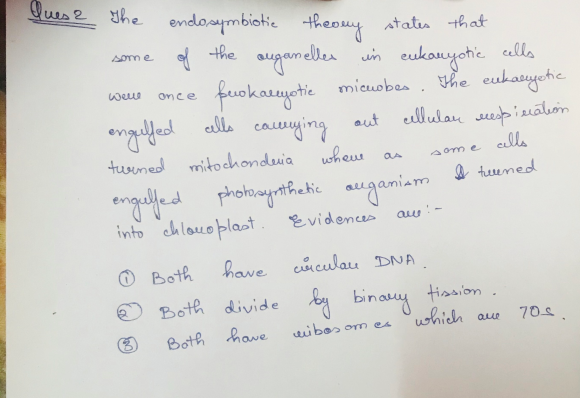 Ques 2 The endosymbiotic theory states that
some of the organelles in eukaryotic cells
were once prokaryotic microbes. The eukaryotic
engulfed cells carrying out cellular respiration
turned mitochondria where as some cells
engulfed photosynthetic organism & turned
into chloroplast. Evidences are:-
① Both have circular DNA.
② Both divide by binary fission.
③ Both have ribosomes which are 70S.